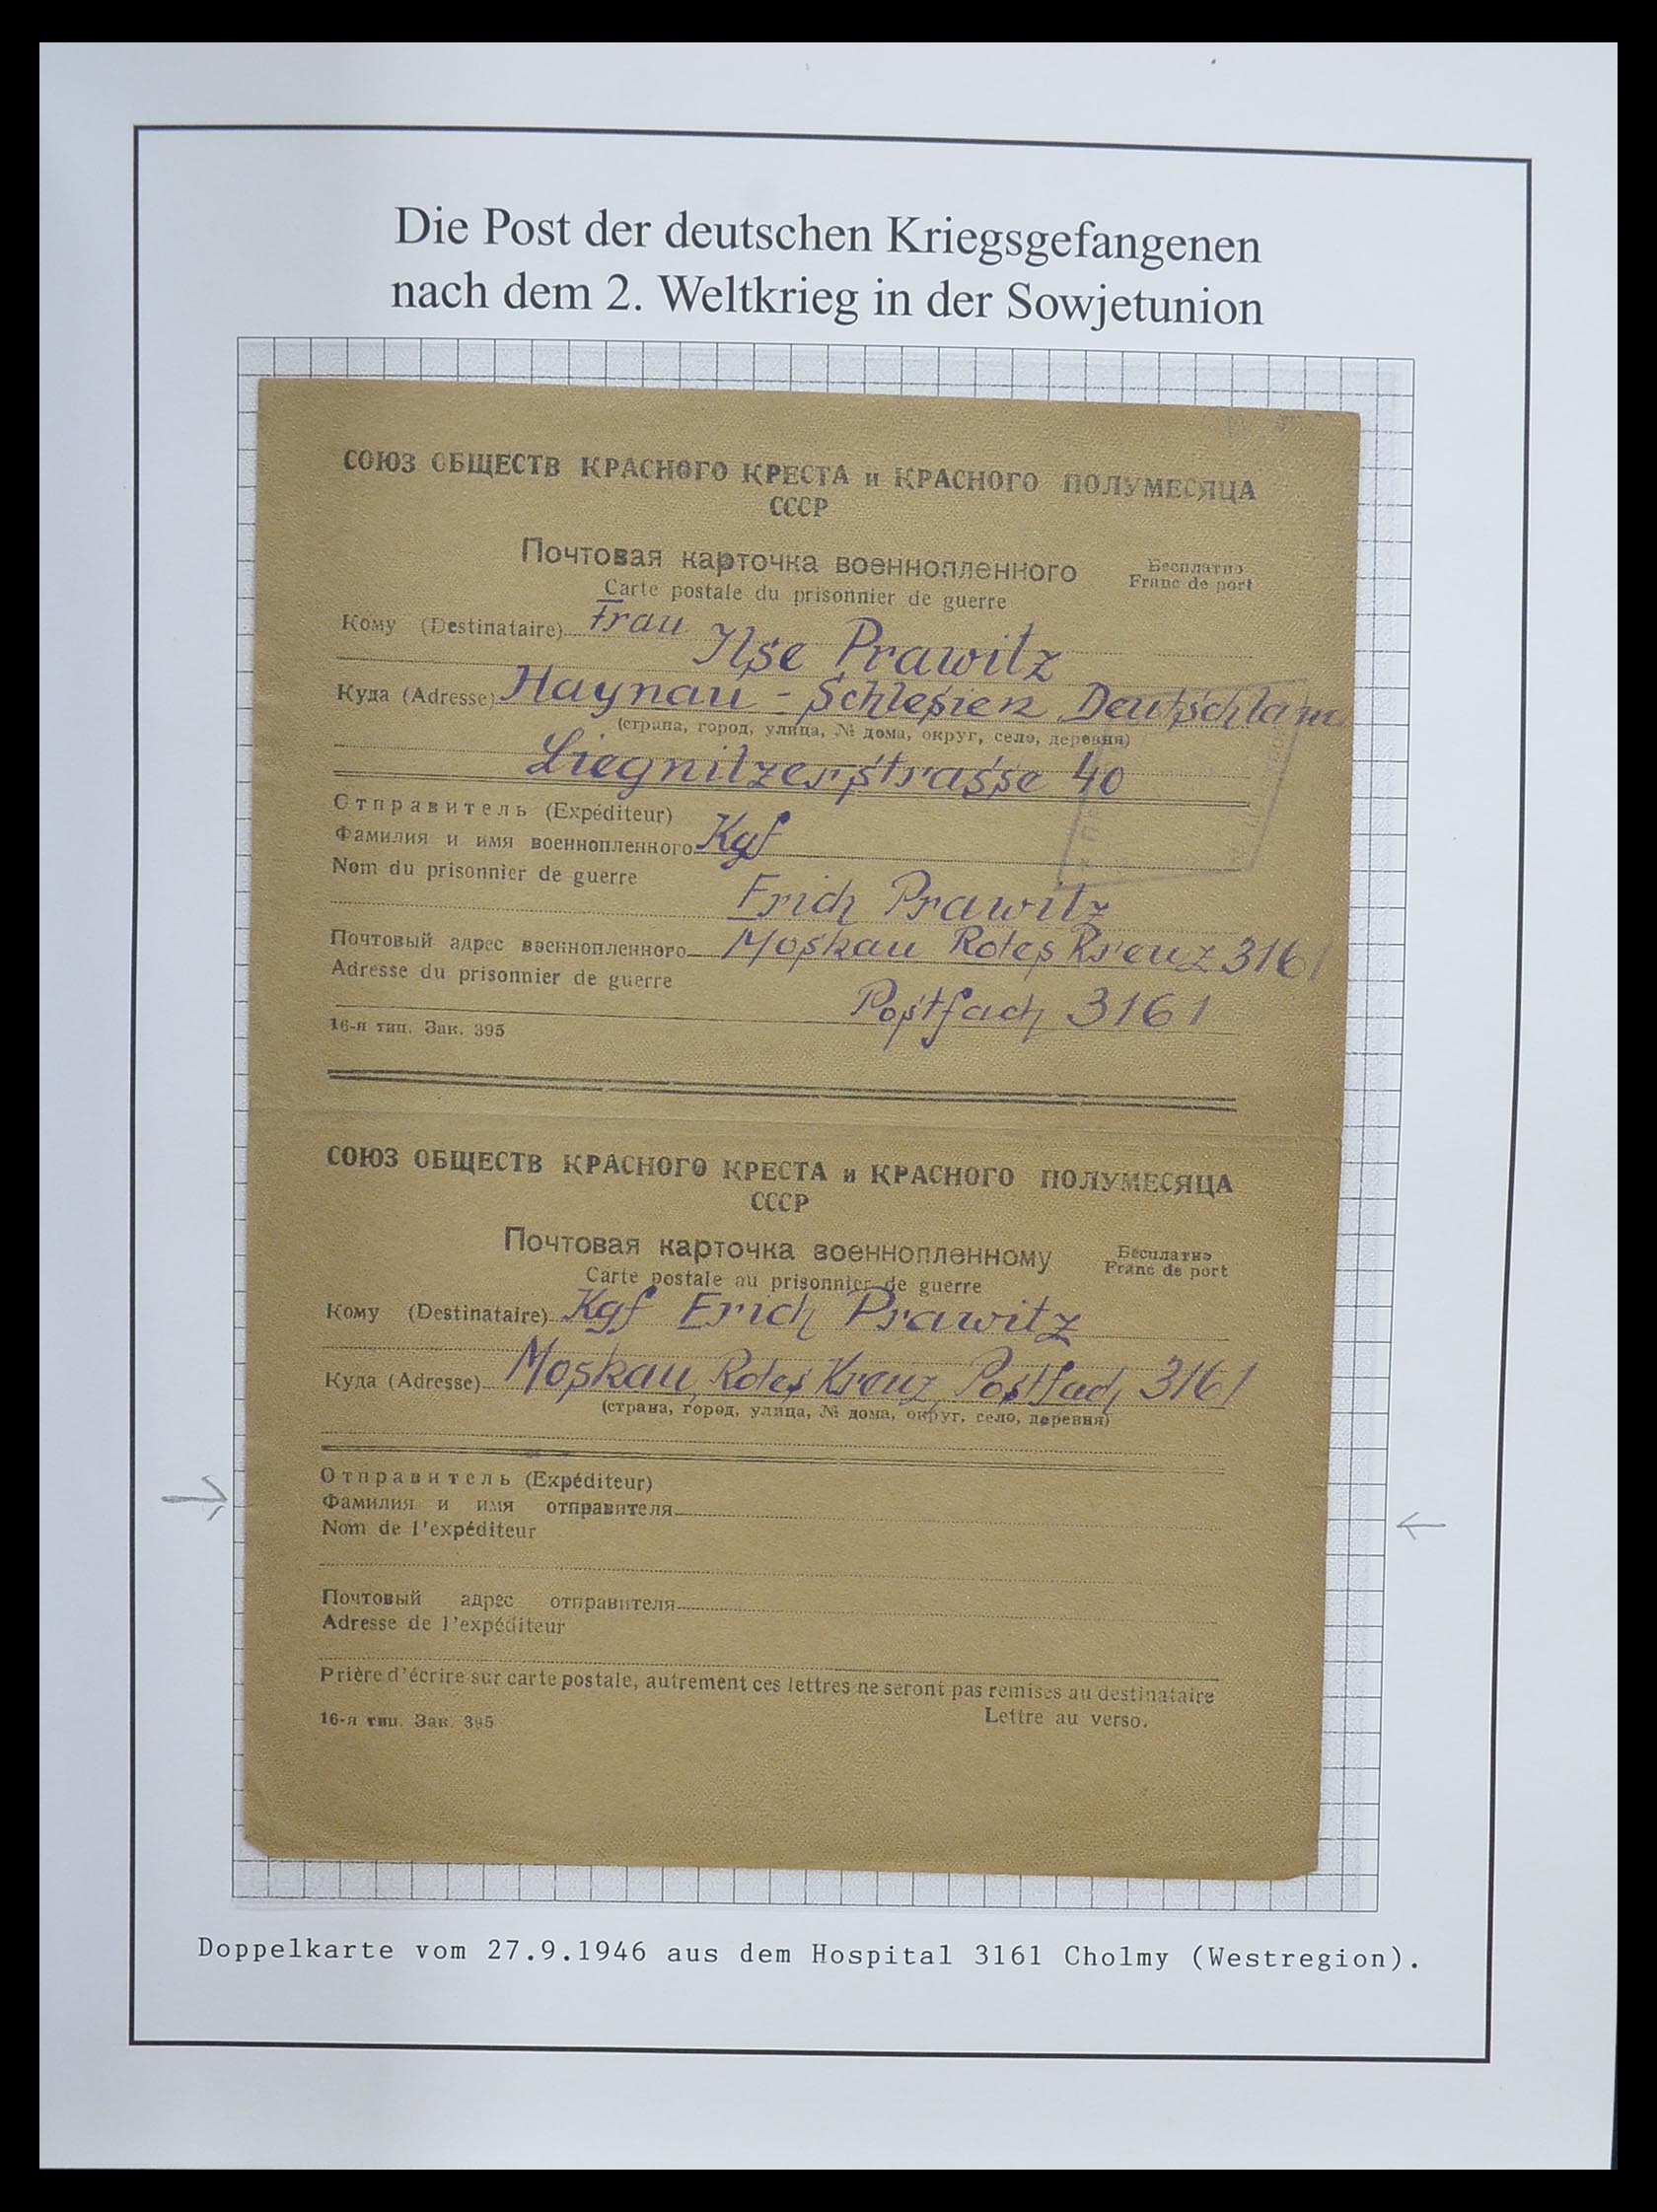 Die Post der deutschen Kriegsgefangenen
nach dem 2. Weltkrieg in der Sowjetunion
СОЮЗ ОБЩЕСТВ КРАСНОГО КРЕСТА и КРАСНОГО ПОЛУМЕСЯЦА
СССР
Почтовая карточка военнопленного
Бесплатно
Carte postale du prisonnier de guerre
Franc de port
Кому (Destinataire) Frau
Ilse Prawitz
Куда (Adresse) Haynau - Schlesien Deutschland
(страна, город, улица, № дома, округ, село, деревня)
Liegnitzerstrasse 40
Отправитель (Expéditeur)
Фамилия и имя военнопленного Kgf
Nom du prisonnier de guerre
Erich Prawitz
Почтовый адрес военнопленного Moskau Rotes Kreuz 3161
Adresse du prisonnier de guerre
Postfach 3161
16-я тип. Зак. 395
СОЮЗ ОБЩЕСТВ КРАСНОГО КРЕСТА и КРАСНОГО ПОЛУМЕСЯЦА
СССР
Почтовая карточка военнопленному
Бесплатно
Carte postale au prisonnier de guerre
Franc de port
Кому (Destinataire) Kgf Erich Prawitz
Куда (Adresse) Moskau, Rotes Kreuz, Postfach 3161
(страна, город, улица, № дома, округ, село, деревня)
Отправитель (Expéditeur)
Фамилия и имя отправителя
Nom de l'expéditeur
Почтовый адрес отправителя
Adresse de l'expéditeur
Prière d'écrire sur carte postale, autrement ces lettres ne seront pas remises au destinataire
16-я тип. Зак. 395
Lettre au verso.
Doppelkarte vom 27.9.1946 aus dem Hospital 3161 Cholmy (Westregion).